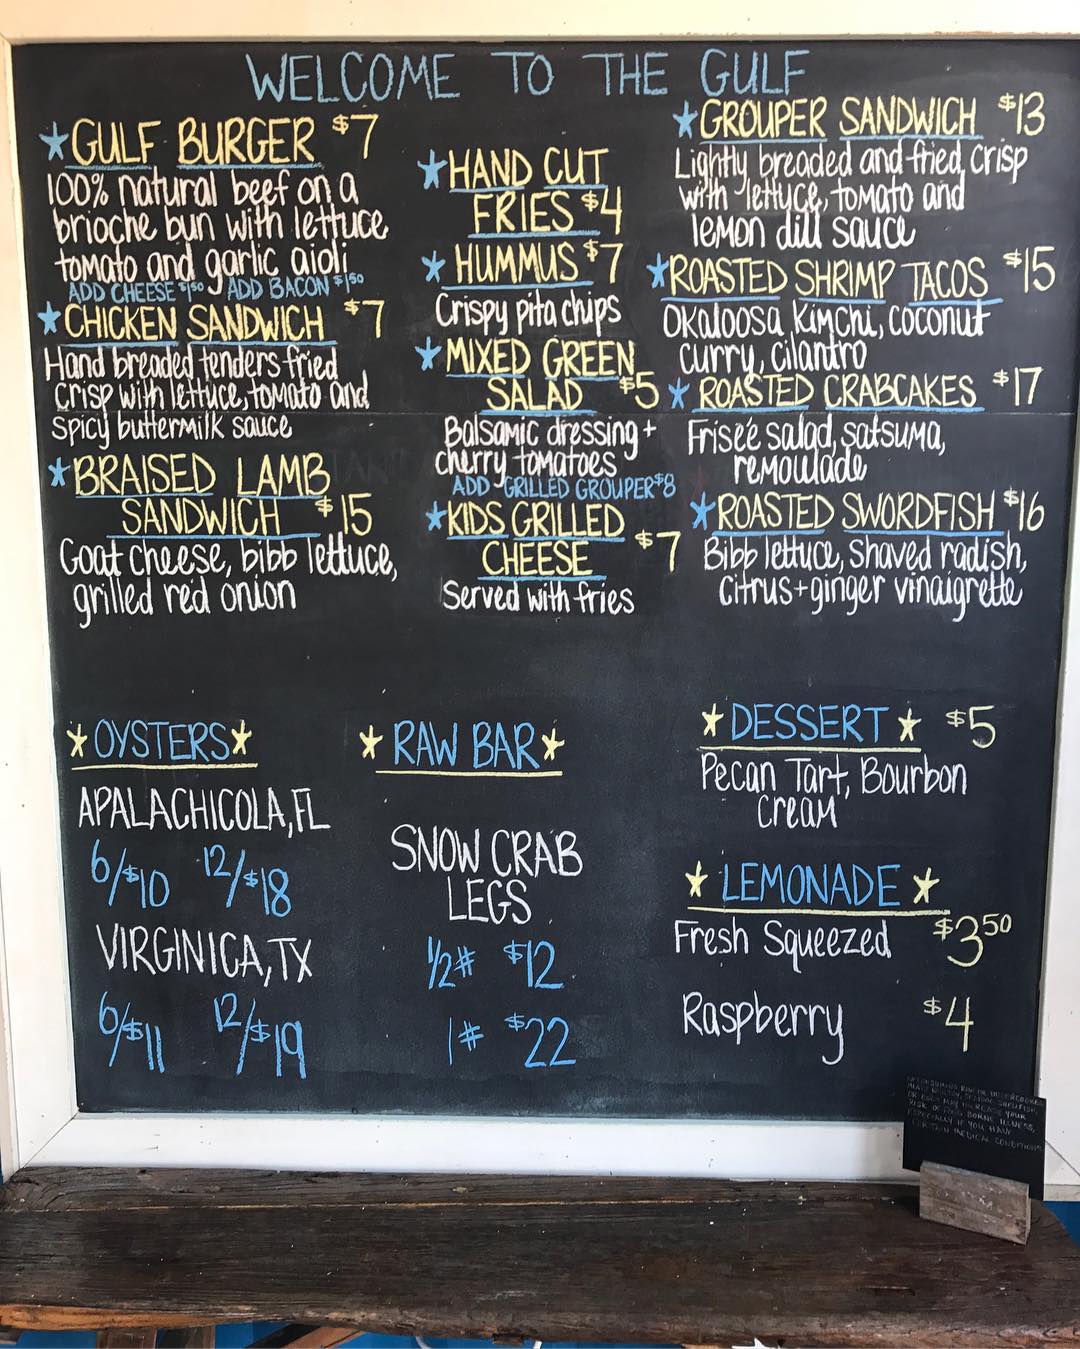 WELCOME TO THE GULF
★ GULF BURGER $7
100% natural beef on a
brioche bun with lettuce
tomato and garlic aioli
ADD CHEESE $1⁵⁰ ADD BACON $1⁵⁰
★ CHICKEN SANDWICH $7
Hand breaded tenders fried
crisp with lettuce, tomato and
spicy buttermilk sauce
★ BRAISED LAMB
SANDWICH $15
Goat cheese, bibb lettuce,
grilled red onion
★ HAND CUT
FRIES $4
★ HUMMUS $7
Crispy pita chips
★ MIXED GREEN
SALAD $5
Balsamic dressing +
cherry tomatoes
ADD GRILLED GROUPER $8
★ KIDS GRILLED
CHEESE $7
Served with fries
★ GROUPER SANDWICH $13
Lightly breaded and fried crisp
with lettuce, tomato and
lemon dill sauce
★ ROASTED SHRIMP TACOS $15
Okaloosa Kimchi, coconut
curry, cilantro
★ ROASTED CRABCAKES $17
Friseé salad, satsuma,
remoulade
★ ROASTED SWORDFISH $16
Bibb lettuce, shaved radish,
citrus + ginger vinaigrette
★ OYSTERS ★
APALACHICOLA, FL
6/$10 12/$18
VIRGINICA, TX
6/$11 12/$19
★ RAW BAR ★
SNOW CRAB
LEGS
1/2# $12
1# $22
★ DESSERT ★ $5
Pecan Tart, Bourbon
Cream
★ LEMONADE ★
Fresh Squeezed $3⁵⁰
Raspberry $4
RISK OF FOOD BORNE ILLNESS,
ESPECIALLY IF YOU HAVE
CERTAIN MEDICAL CONDITIONS